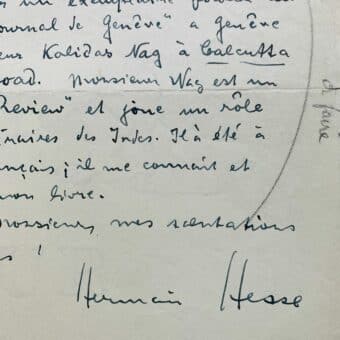 un exemplaire
Journal de Genève" a Genève
eur Kalidas Nag à Calcutta
oad. Monsieur Nag est un
Review" et joue un rôle
inaires des Indes. Il a été à
nçais; il me connait et
mon livre.
Monsieur, mes salutations
s !
Hermann Hesse
à faire